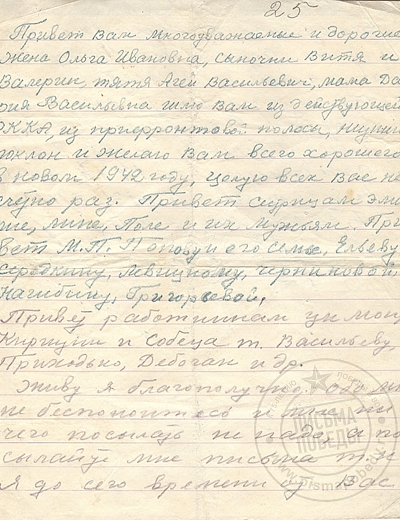 25
Привет Вам многоуважаемые и дорогие
Жена Ольга Ивановна, сыночки Витя и
Валерик, тятя Агей Васильевич, мама Да
рия Васильевна шлю Вам из действующей
РККА, из прифронтовой полосы, низкий
поклон и желаю Вам всего хорошего
в новом 1942 году, целую всех Вас не
счётно раз. Привет сестрицам
Поле и их мужьям. При
вет М.П. Попову и его семье,
Середкину, Левицкому, Черпиковой,
Нагибину, Григорьевой,
Привет работникам
и т. Васильеву,
Приходько, и др.
Живу я благополучно.
не беспокойтесь и мне ни
чего посылать не надо, а по
сылайте мне письма т.к.
Я до сего времени от Вас
ПИСЬМА
ПОБЕДЫ